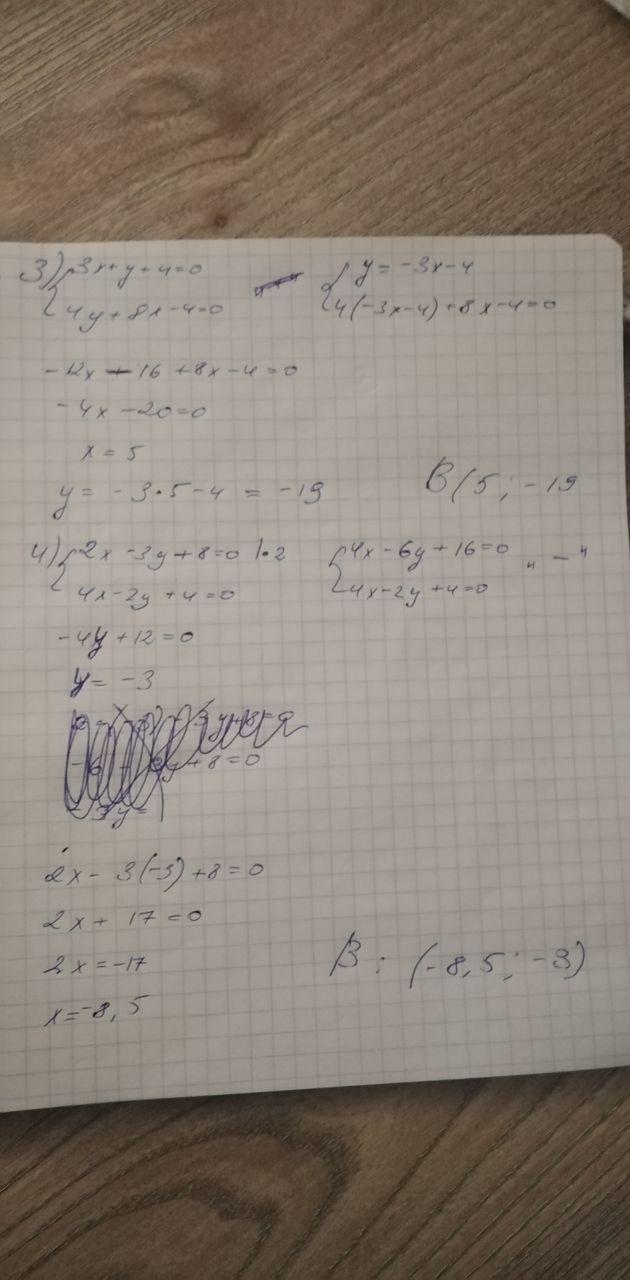 3) { 3x+y+4=0 { y = -3x-4
4y+8x-4=0 4(-3x-4)+8x-4=0
-12x-16+8x-4=0
-4x-20=0
x = 5
y = -3·5-4 = -19 B(5; -19
4) { 2x-3y+8=0 |·2 { 4x-6y+16=0 "-"
4x-2y+4=0 4x-2y+4=0
-4y+12=0
y = -3
+8=0
2x-3(-3)+8=0
2x+17=0
2x=-17 B: (-8,5; -3)
x=-8,5